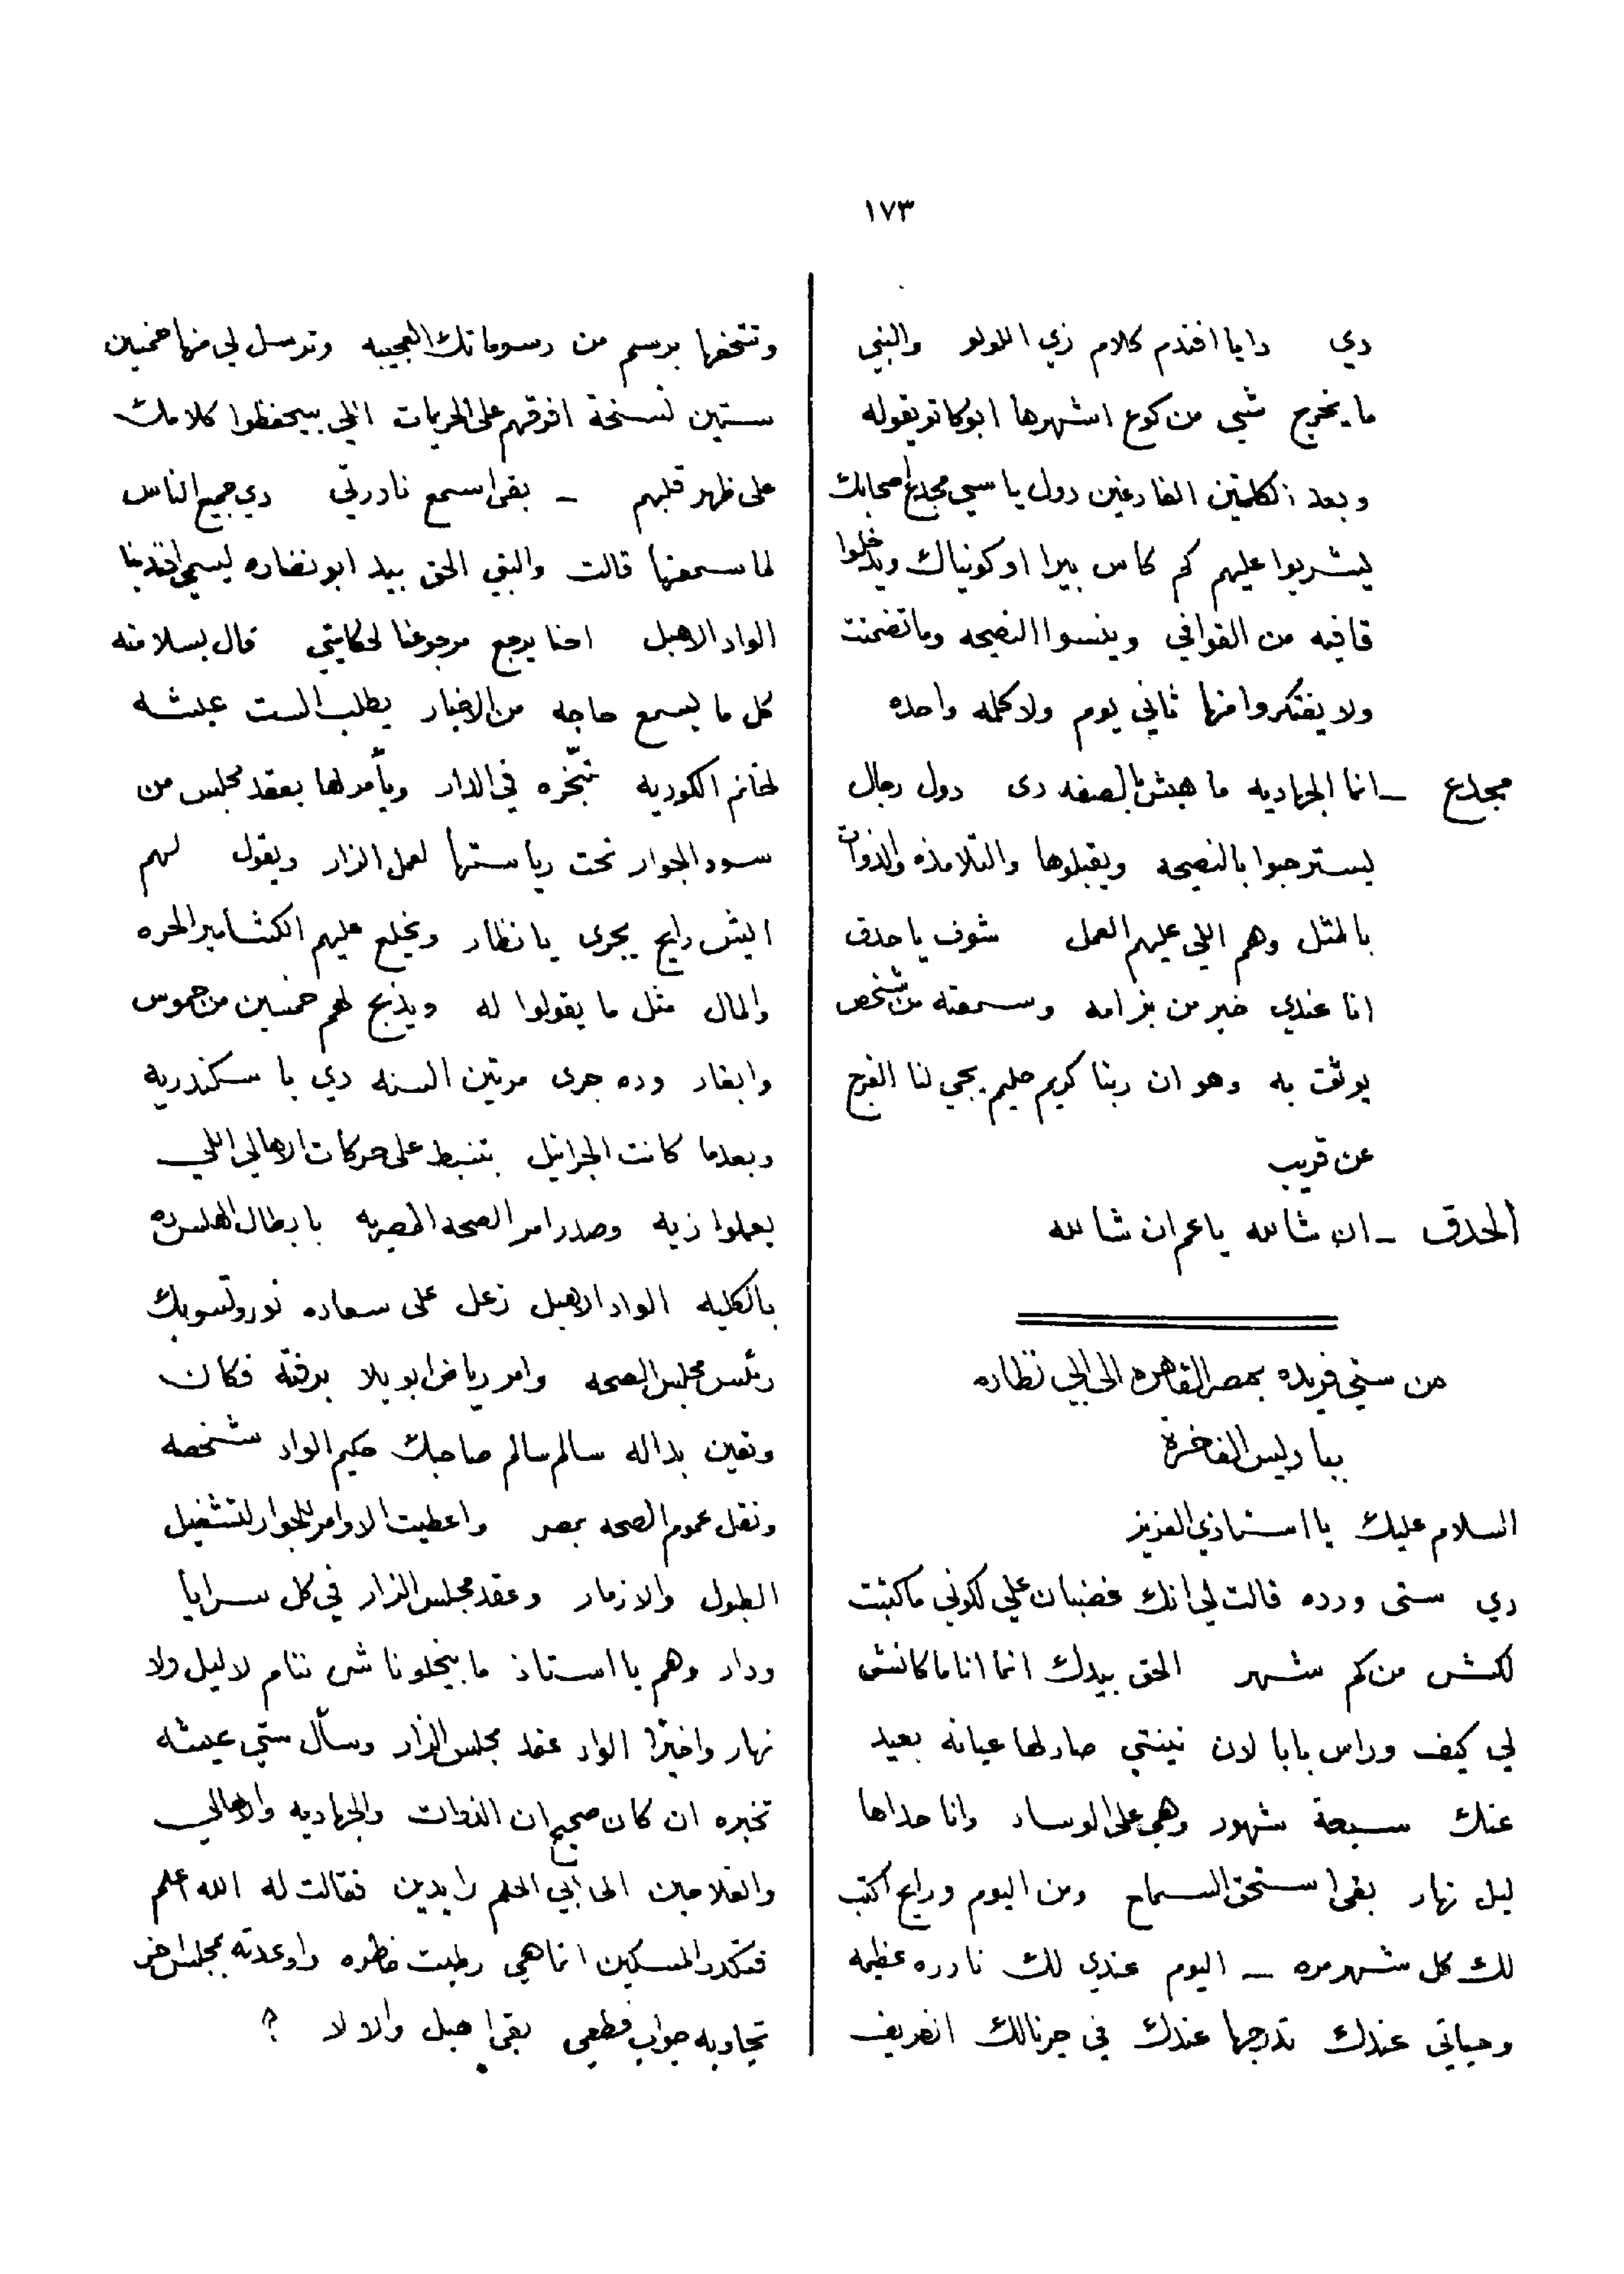 ١٧٣
دي دا يا افندم كلام زي اللولو والنبي
ما يخرج شي من كوع اشهرها ابوكاتو يقوله
وبعد الكلمتين الفارغين دول يا سي مجدع اصحابك
يشربوا عليهم كم كاس بيرا او كونياك ويدخلوا
قافيه من القوافي وينسوا النصيحه وما تضمنت
ولا يفتكروا منها ثاني يوم ولا كلمه واحده
مجدع ــ انما الجهاديه ما هيش بالصفه دى دول رجال
يسترحبوا بالنصيحه ويقبلوها والتلامذه والذوات
بالمثل وهم اللي عليهم العمل شوف يا حدق
انا عندي خبر من بزامه وسمعته من شخص
يوثق به وهو ان ربنا كريم حليم يجي لنا الفرج
عن قريب
الحدق ــ ان شالله يا عم ان شالله
من ستي فريده بمصر القاهره الى ابي نظاره
بباريس الفاخرة
السلام عليك يا استاذي العزيز
دي ستى ورده قالت لي انك غضبان علي لكوني ما كتبت
لكش من كم شهر الحق بيدك انما انا ما كانش
لي كيف وراس بابا لان نينتي صار لها عيانه بعيد
عنك سبعة شهور وهي على الوساد وانا حداها
ليل نهار بقى استحق السماح ومن اليوم ورايح اكتب
لك كل شهر مره ــ اليوم عندي لك نادره عظيمه
وحياتي عندك تدرجها عندك في جرنالك الظريف
وتتحفها برسم من رسوماتك العجيبه وترسل لي منها خمسين
ستين نسخة افرقهم على الحريمات اللي بيحفظوا كلامك
على ظهر قلبهم ــ بقى اسمع نادرتي دي جميع الناس
لما سمعتها قالت والنبي الحق بيد ابو نضاره ليسمي افندينا
الواد الاهبل احنا يرجع مرجوعنا لحكايتي قال بسلامته
كل ما يسمع حاجه من الاخبار يطلب الست عيشه
لخانم الكوريه تبخّره في الدار ويأمر لها بعقد مجلس من
سود الجوار تحت رياستها لعمل الزار ويقول لهم
ايش رايح يجرى يا نظار ويخلع عليهم الكشامير الحره
والمال مثل ما يقولوا له ويذبح لهم خمسين من جموس
وابقار وده جرى مرتين السنه دي با سكندريه
وبعدما كانت الجرانيل بتنبسط على حركات الاهالي اللي
يعملوا زيه وصدر امر الصحه المصريه بابطال الهلس ده
بالكليه الواد الاهبل زعل على سعاده نوروتسوبك
رئس مجلس الصحه وامر رياض ابو يلا برفته فكان
وتعين بداله سالم سالم صاحبك حكيم الواد شخصه
ونقل عموم الصحه بمصر واعطيت الاوامر للجوار لتشغيل
الطبول والازمار وعقد مجلس الزار في كل سرايا
ودار وهم يا استاذ ما بيخلوناش ننام لا ليل ولا
نهار واخيرًا الواد عقد مجلس الزار وسأل ستي عيشه
تخبره ان كان صحيح ان الذوات والجهاديه والاهالي
والفلاحين الى ابي الحلم رايدين فقالت له الله اعلم
فتكدر المسكين انما هي رطبت خاطره واوعدته بمجلس اخر
تجاوبه جواب قطعي بقى اهبل والا لا ؟